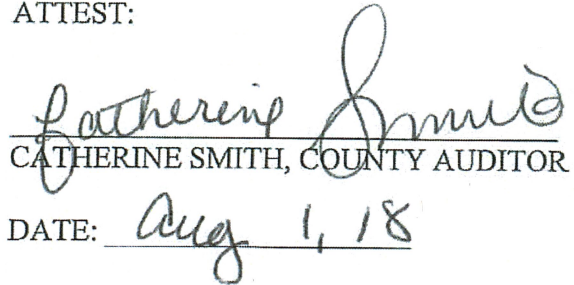 ATTEST:
Catherine Smith
CATHERINE SMITH, COUNTY AUDITOR
DATE: Aug 1, 18